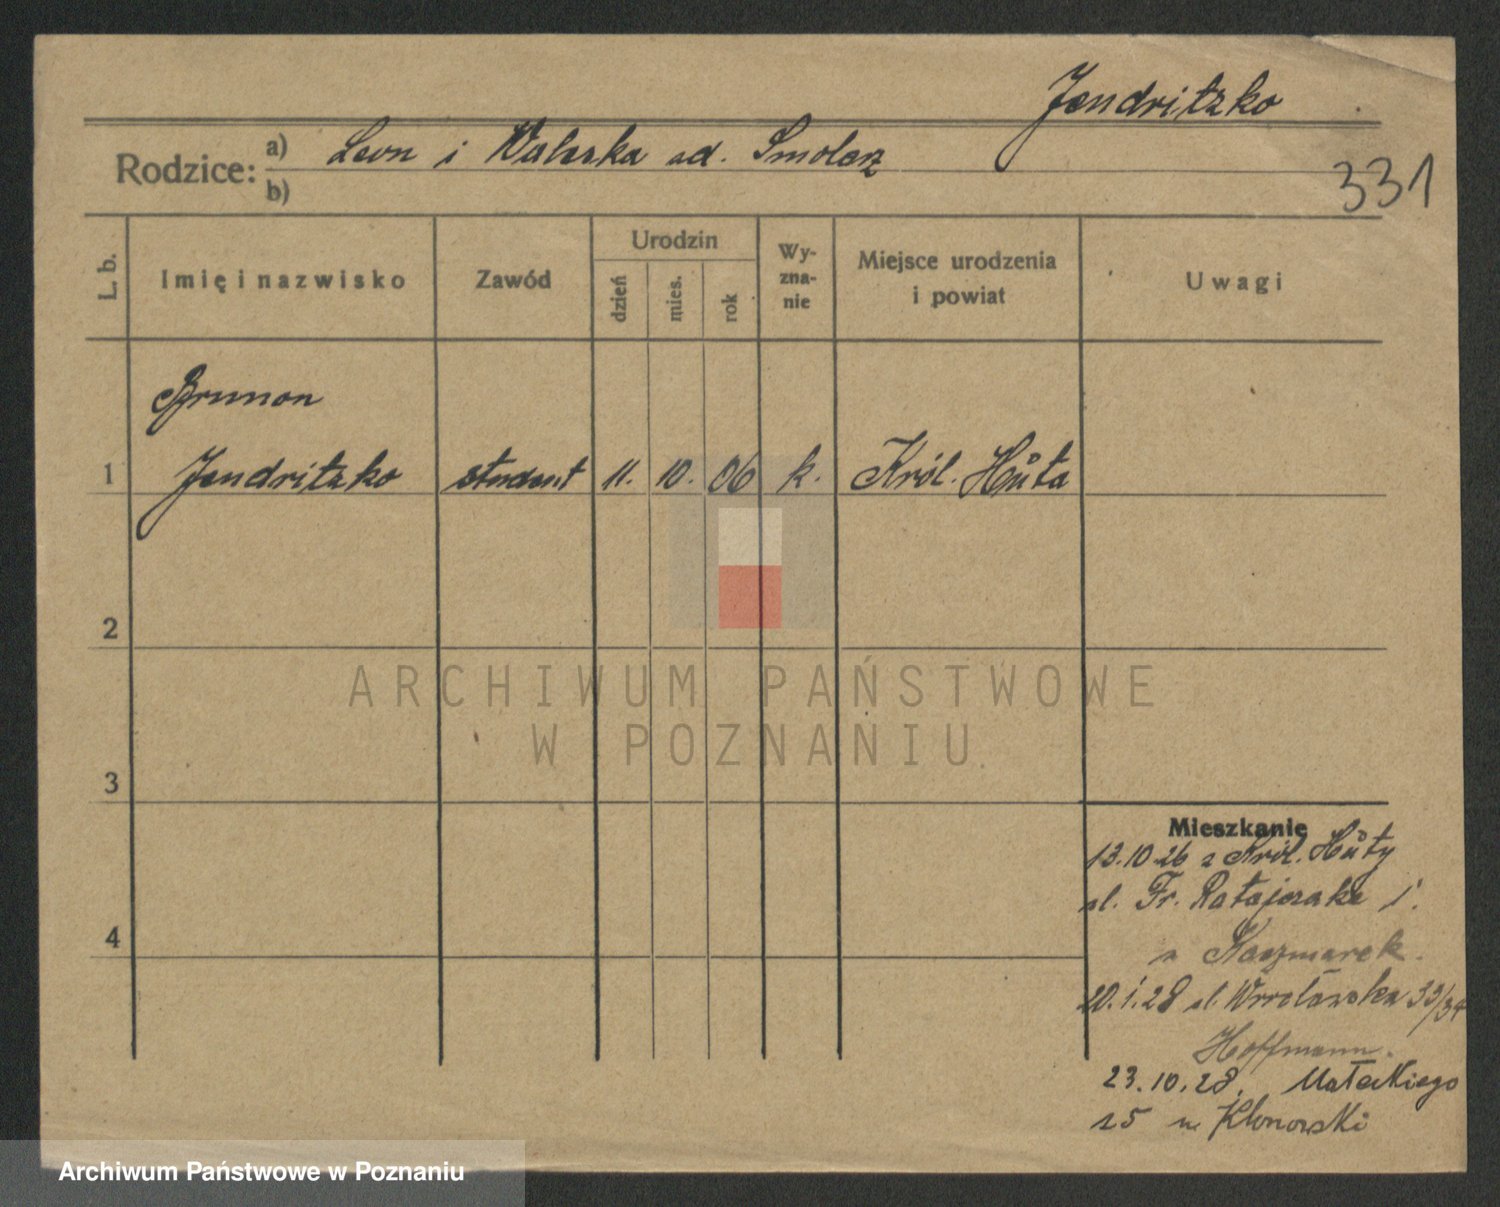 Jendritzko
Rodzice: a) Leon i Waleska ad. Smolarz
b)
331
L. b.
Imię i nazwisko
Zawód
Urodzin
dzień
mies.
rok
Wy-
zna-
nie
Miejsce urodzenia
i powiat
Uwagi
Brunon
1 Jendritzko student 11. 10. 06 k. Król. Hůta
2
ARCHIWUM PAŃSTWOWE
W POZNANIU
3
Mieszkanie
13.10.26 z Król. Hůty
ul. Fr. Ratajczaka
4
u Kaczmarek.
20.1.28 ul. Wrocławska 33/34
Hoffmann.
23.10.28. Małeckiego
u Klonowski
Archiwum Państwowe w Poznaniu